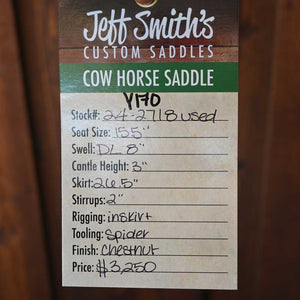 Jeff Smith's
CUSTOM SADDLES
COW HORSE SADDLE
Y170
Stock#: 24-2718 used
Seat Size: 15.5"
Swell: DL 8"
Cantle Height: 3"
Skirt: 26.5"
Stirrups: 2"
Rigging: inskirt
Tooling: Spider
Finish: Chestnut
Price: $3,250